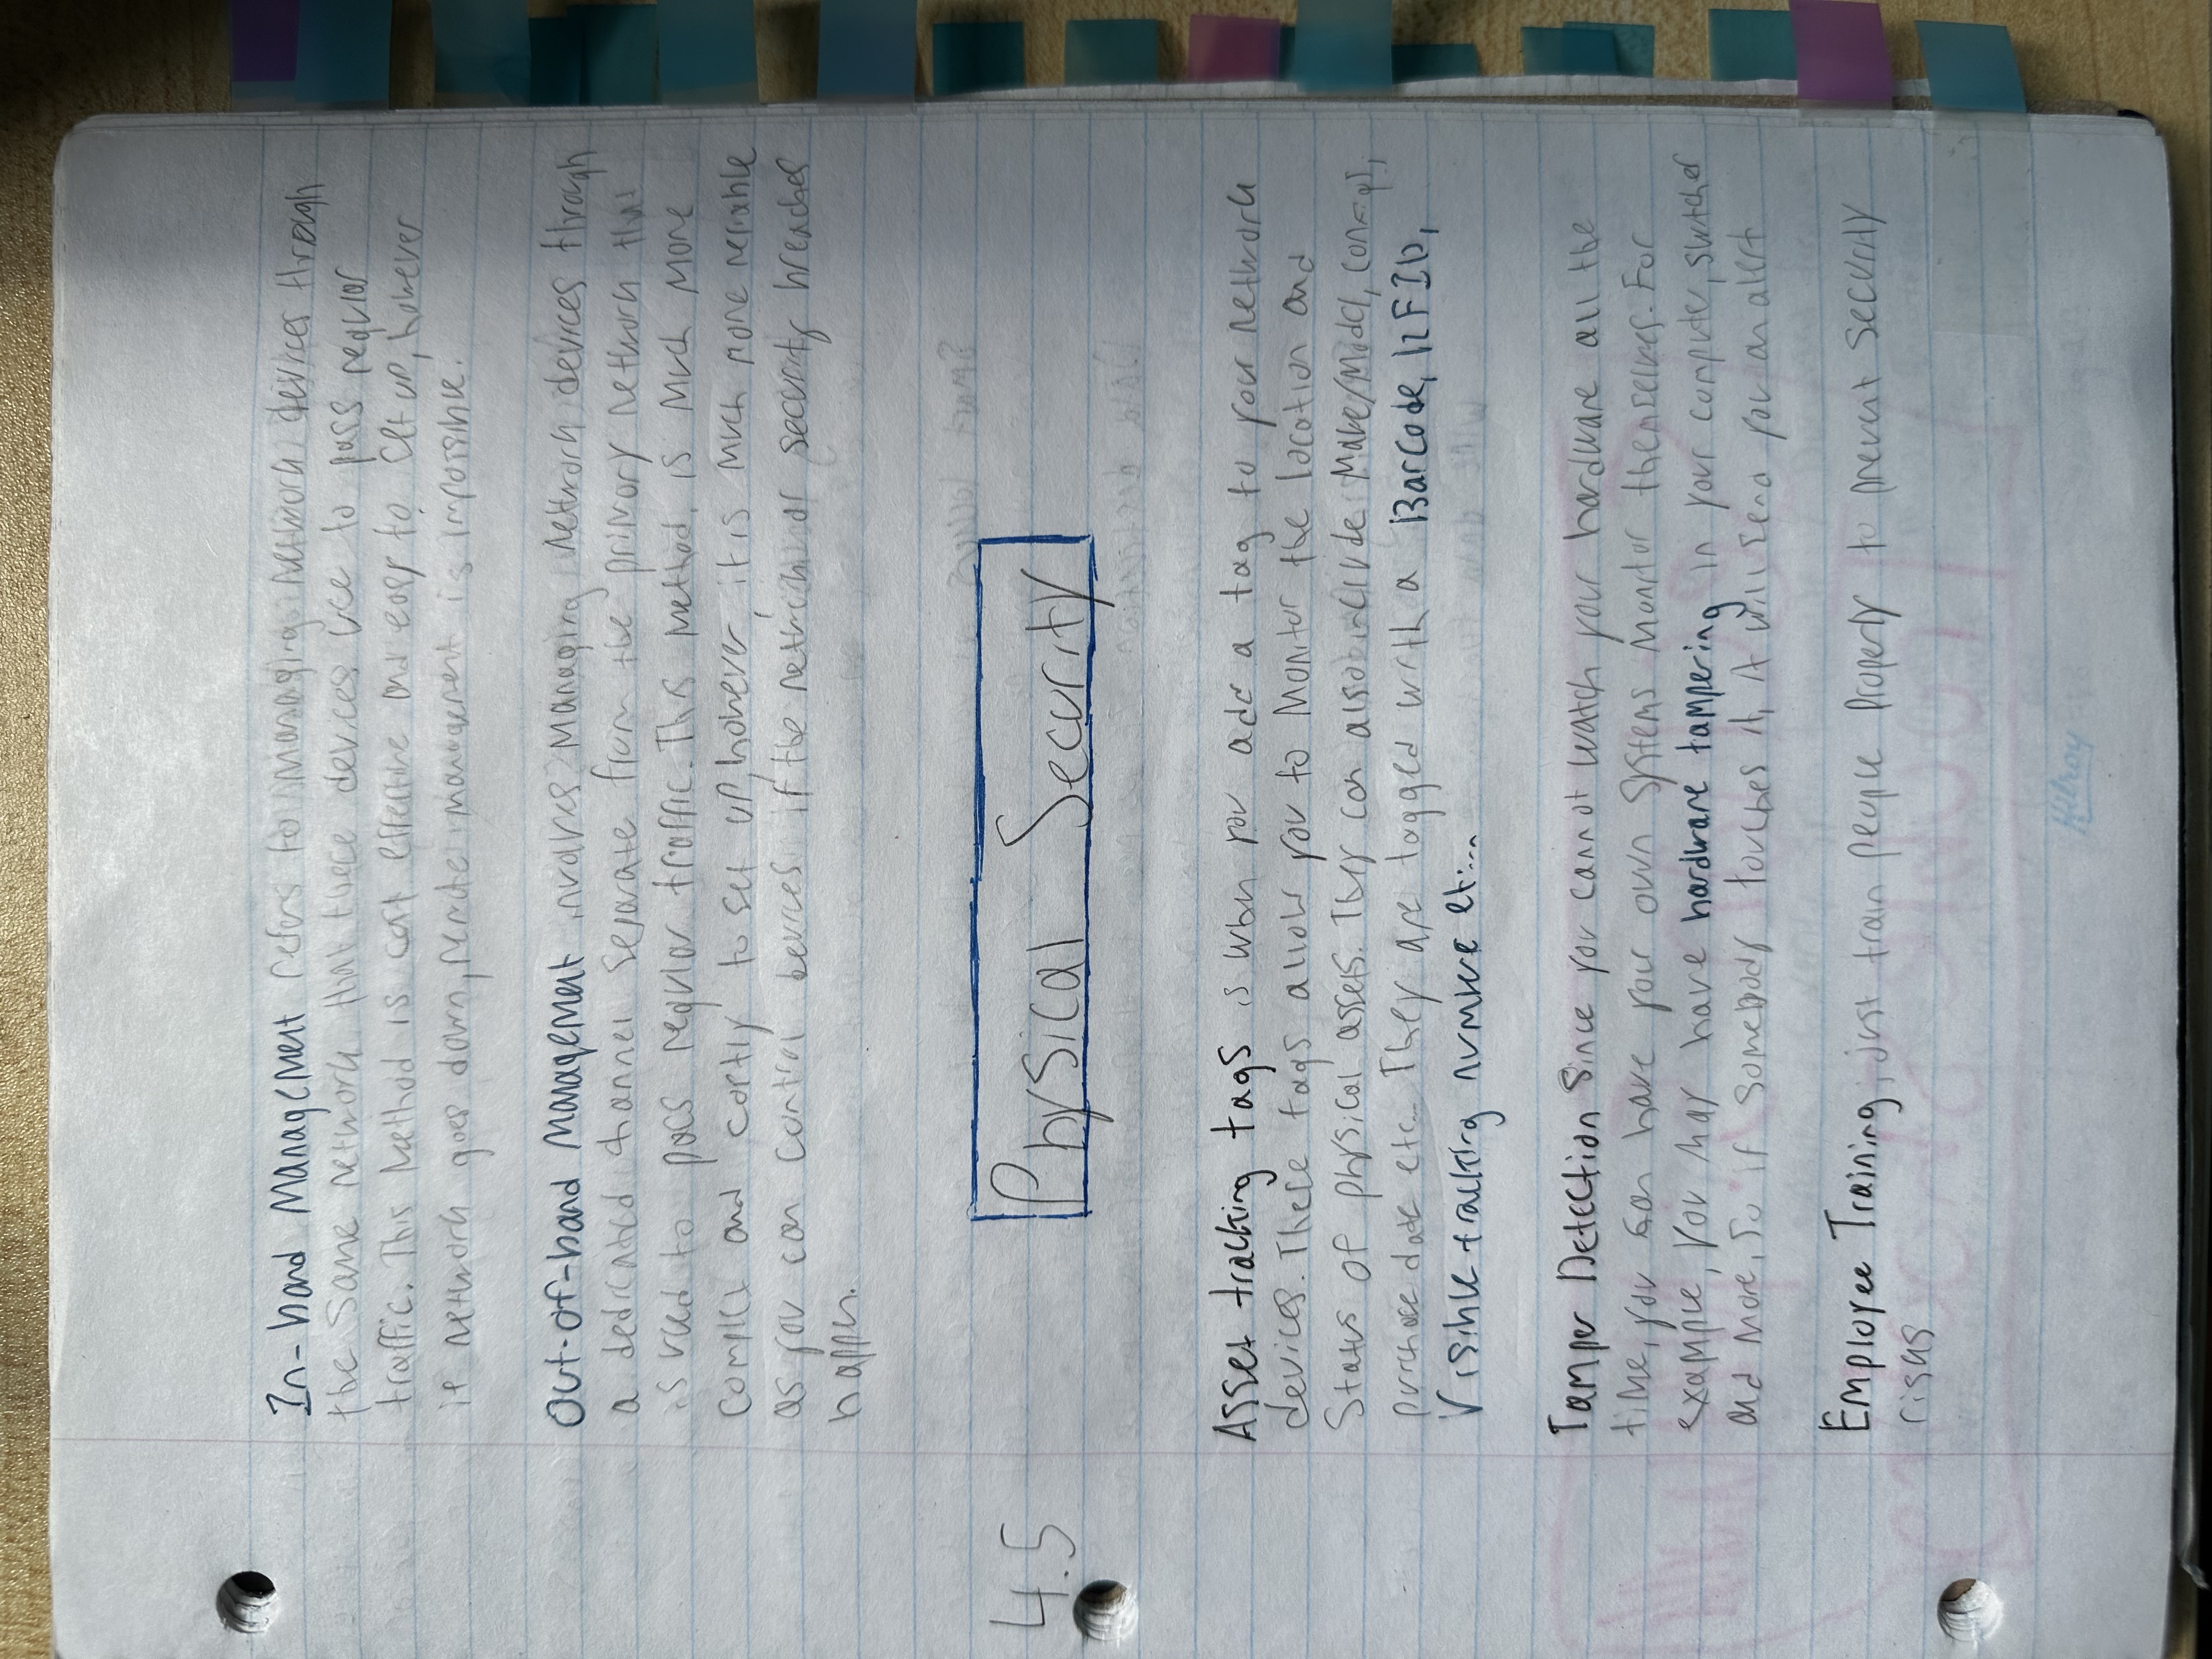 In-band Management refers to managing network devices through
the same network that these devices use to pass regular
traffic. This Method is cost effective and easy to set up, however
if network goes down, remote management is impossible.
Out-of-band Management involves Managing network devices through
a dedicated channel separate from the primary network that
is used to pass regular traffic. This method, is much more
complex and costly to set up, however, it is much more reliable
as you can control devices if the network or security breaches
happen.
4.5
Physical Security
Asset tracking tags is when you add a tag to your network
devices. These tags allow you to Monitor the location and
Status of physical assets. They can also include Make/Model, configs,
purchase date etc... They are tagged with a Barcode, RFID,
Visible tracking number etc...
Tamper Detection Since you cannot watch your hardware all the
time, you can have your own systems monitor themselves. For
example, you may have hardware tampering in your computer, switches
and more, so if somebody touches it, it will send you an alert
Employee Training, just train people properly to prevent security
risks
Hilroy